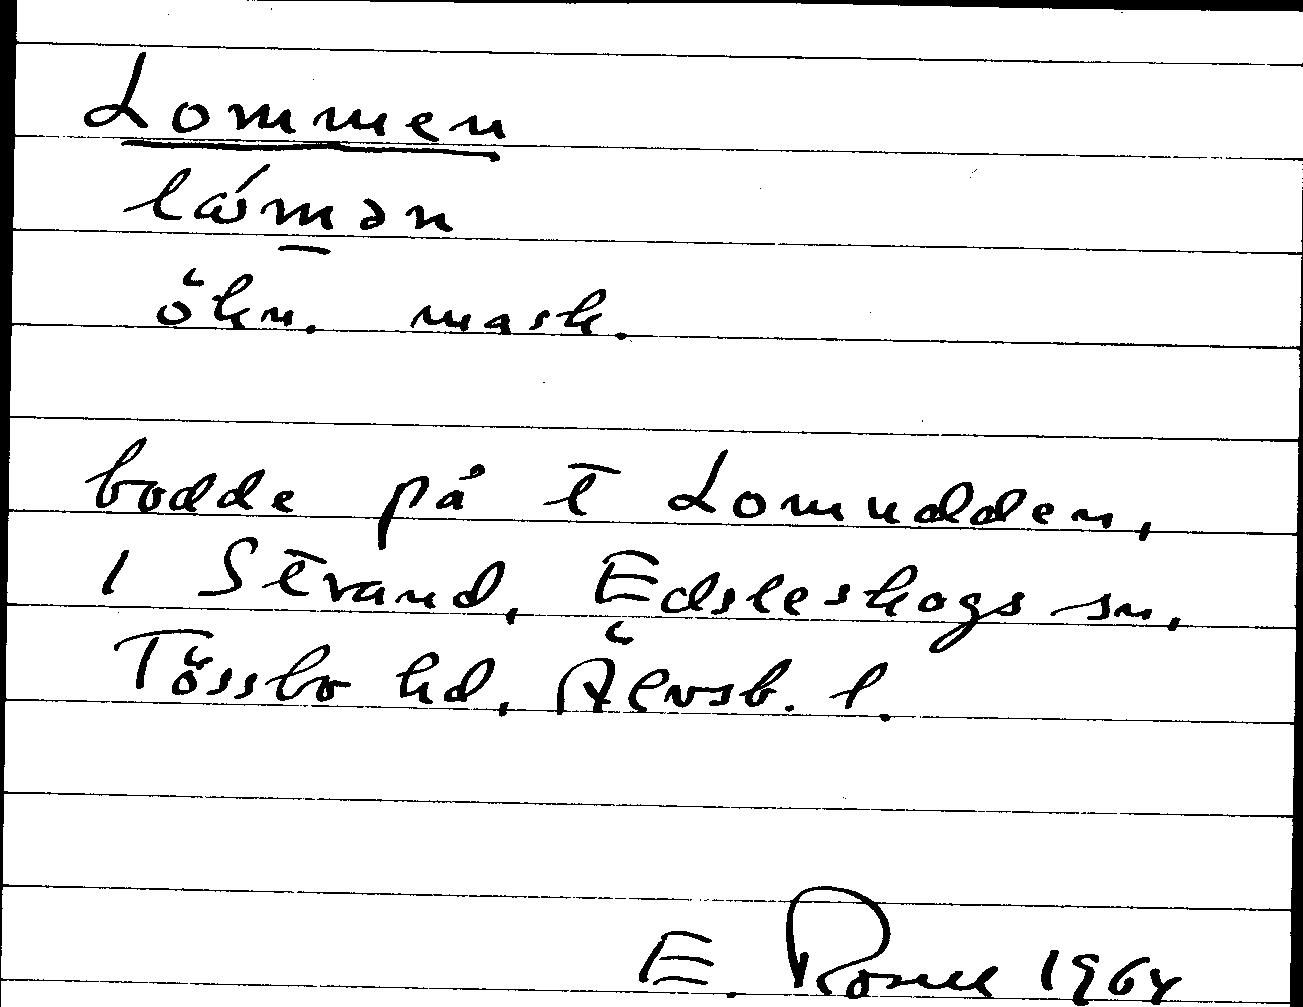 Lommen
låm̲ən
ökn. mask.
bodde på t Lomudden,
1 Strand, Edsleskogs sn,
Tössbo hd, Älvsb. l.
E. 1964